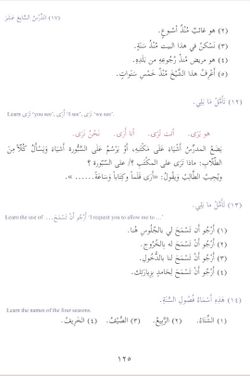 (١٧) الدَّرْسُ السَّابِعَ عَشَرَ
(٢) هو غائبٌ مُنْذُ أُسْبُوعٍ.
(٣) نَسْكُنُ في هذا البيت مُنْذُ سَنَةٍ.
(٤) هو مريضٌ مُنْذُ رُجُوعِهِ من بَلَدِهِ.
(٥) أَعْرِفُ هذا الشَّيْخَ مُنْذُ خَمْسِ سَنَواتٍ.
(١٢) تَأَمَّلْ مَا يَلِي.
Learn تَرَى 'you see', أَرَى 'I see', نَرَى 'we see'.
هو يَرَى. أنت تَرَى. أنا أَرَى. نَحْنُ نَرَى.
يَضَعُ المدرِّسُ أَشْيَاءَ عَلَى مَكْتَبِهِ، أَو يَرْسُمُ عَلَى السَّبُّورةِ أَشْيَاءَ وَيَسْأَلُ كُلاًّ مِنَ
الطُّلاَّبِ: ماذا تَرَى على المكتَبِ ؟ / على السَّبُّورةِ ؟
ويُجيبُ الطَّالِبُ ويَقُولُ: «أَرَى قَلَماً وكِتَاباً وَسَاعَةً ...... ».
(١٣) تَأَمَّلْ مَا يَلِي.
Learn the use of أَرْجُو أَن تَسْمَحَ... 'I request you to allow me to ...'
(١) أَرْجُو أَن تَسْمَحَ لي بالجُلُوسِ هُنَا.
(٢) أَرْجُو أَن تَسْمَحَ له بالخُرُوجِ.
(٣) أَرْجُو أَن تَسْمَحَ لنا بالدُّخُولِ.
(٤) أَرْجُو أَن تَسْمَحَ لِحَامِدٍ بِزِيارَتِكَ.
(١٤) هَذِهِ أَسْمَاءُ فُصُولِ السَّنَةِ.
Learn the names of the four seasons.
(١) الشِّتَاءُ. (٢) الرَّبِيعُ. (٣) الصَّيْفُ. (٤) الخَرِيفُ.
١٢٥